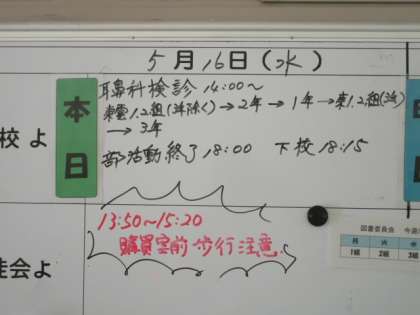 5月16日(水)
本日
耳鼻科検診 14:00〜
東雲1.2組(3年除く)→2年→1年→東1.2組(3年)
→3年
部活動終了 18:00 下校 18:15
校よ
13:50〜15:20
購買室前 歩行注意
徒会よ
図書委員会 今週
月 火 水
1組 2組 3組